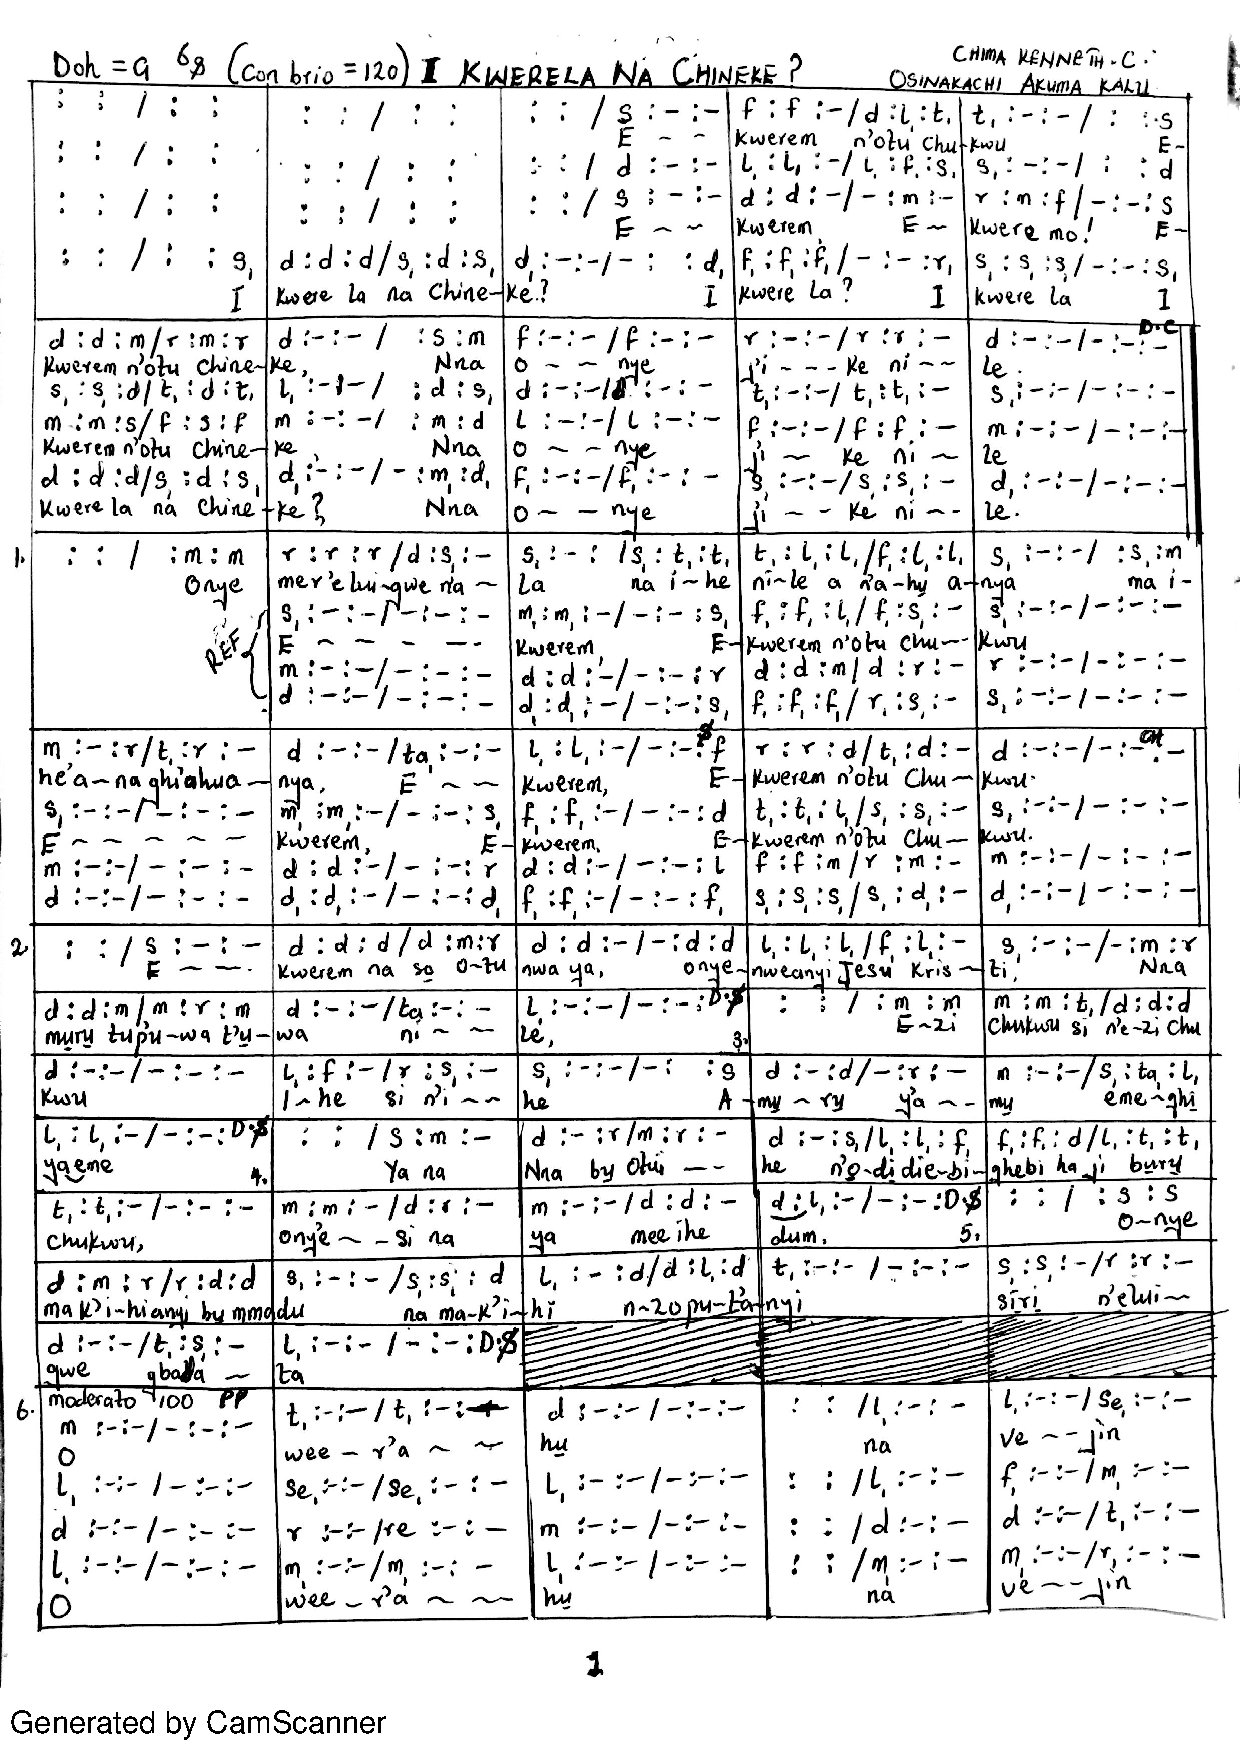 Doh = G 6/8 (Con brio = 120) I KWERELA NA CHINEKE?
CHIMA KENNETH . C .
OSINAKACHI AKUMA KALU
: : / : : | : : / : : | : : / s : - : - | f : f : - / d : l, : t, | t, : - : - / : : s
E ~ ~ | Kwerem n'otu Chu- | kwu E-
: : / : : | : : / : : | : : / d : - : - | l, : l, : - / l, : f, : s, | s, : - : - / : : d
: : / : : | : : / : : | : : / s : - : - | d : d : - / - : m : - | r : m : f / - : - : s
E ~ ~ | Kwerem, E ~ | Kwere mo! E-
: : / : : s, | d : d : d / s, : d : s, | d, : - : - / - : : d, | f, : f, : f, / - : - : r, | s, : s, : s, / - : - : s,
I | Kwere la na Chine- | ke? I | Kwere La? I | Kwere La I
D.C
d : d : m / r : m : r | d : - : - / : s : m | f : - : - / f : - : - | r : - : - / r : r : - | d : - : - / - : - : -
Kwerem n'otu Chine- | ke, Nna | O ~ ~ nye | ji - - - ke ni ~ ~ | le.
s, : s, : d / t, : d : t, | l, : - : - / : d : s, | d : - : - / d : - : - | t, : - : - / t, : t, : - | s, : - : - / - : - : -
m : m : s / f : s : f | m : - : - / : m : d | l : - : - / l : - : - | f : - : - / f : f : - | m : - : - / - : - : -
Kwerem n'otu Chine- | ke, Nna | O ~ ~ nye | ji ~ ke ni ~ | le
d : d : d / s, : d : s, | d, : - : - / - : m, : d, | f, : - : - / f, : - : - | s, : - : - / s, : s, : - | d, : - : - / - : - : -
Kwere la na Chine- | ke? Nna | O ~ ~ nye | ji - - ke ni - - | le.
1. : : / : m : m | r : r : r / d : s, : - | s, : - : / s, : t, : t, | t, : l, : l, / f, : l, : l, | s, : - : - / : s, : m
Onye | mer'elu-igwe n'a ~ | La na i-he | ni-le a n'a-hụ a- | nya ma i-
REF
s, : - : - / - : - : - | m, : m, : - / - : - : s, | f, : f, : l, / f, : s, : - | s, : - : - / - : - : -
E ~ ~ - -- | Kwerem, E- | Kwerem n'otu Chu-- | Kwu
m : - : - / - : - : - | d : d : - / - : - : r | d : d : m / d : r : - | r : - : - / - : - : -
d : - : - / - : - : - | d, : d, : - / - : - : s, | f, : f, : f, / r, : s, : - | s, : - : - / - : - : -
m : - : r / t, : r : - | d : - : - / ta, : - : - | l, : l, : - / - : - : f | r : r : d / t, : d : - | d : - : - / - : - : -
he'a-na ghi ahua- | nya, E ~ ~ | Kwerem, E- | Kwerem n'otu Chu- | Kwu.
s, : - : - / - : - : - | m, : m, : - / - : - : s, | f, : f, : - / - : - : d | t, : t, : l, / s, : s, : - | s, : - : - / - : - : -
E ~ ~ ~ ~ ~ | Kwerem, E- | Kwerem, E- | Kwerem n'otu Chu- | kwu.
m : - : - / - : - : - | d : d : - / - : - : r | d : d : - / - : - : l | f : f : m / r : m : - | m : - : - / - : - : -
d : - : - / - : - : - | d, : d, : - / - : - : d, | f, : f, : - / - : - : f, | s, : s, : s, / s, : d, : - | d, : - : - / - : - : -
2. : : / s : - : - | d : d : d / d : m : r | d : d : - / - : d : d | l, : l, : l, / f, : l, : - | s, : - : - / - : m : r
E - - -. | Kwerem na so O-tu | nwa ya, onye- | nweanyi Jesu Kris- | ti, Nna
d : d : m / m : r : m | d : - : - / ta, : - : - | l, : - : - / - : - : D.S | : : / : m : m | m : m : t, / d : d : d
mụrụ tupu-wa t'ụ- | wa ni ~ ~ | le, 3. | E-zi | Chukwu si n'e-zi Chu
d : - : - / - : - : - | l, : f, : - / r : s, : - | s, : - : - / - : : s | d : - : d / - : r : - | m : - : - / s, : ta, : l,
Kwu | I-he si n'i -- | he A- | mụ ~ rụ ya ~ - | mụ eme-ghi
l, : l, : - / - : - : D.S | : : / s : m : - | d : - : r / m : r : - | d : - : s, / l, : l, : f, | f, : f, : d / l, : t, : t,
yaeme 4. | Ya na | Nna bụ Otu -- | he n'ọ-di die-bi- | ghebi ha ji bụrụ
t, : t, : - / - : - : - | m : m : - / d : r : - | m : - : - / d : d : - | d : l, : - / - : - : D.S | : : / : s : s
Chukwu, | onye ~ - si na | ya mee ihe | dum. 5. | O-nye
d : m : r / r : d : d | s, : - : - / s, : s, : d | l, : - : d / d : l, : d | t, : - : - / - : - : - | s, : s, : - / r : r : -
ma k'i-hianyi bụ mma | du na ma-k'i- | hi n-zopu-ta- | nyi | siri n'elui~
d : - : - / t, : s, : - | l, : - : - / - : - : D.S
gwe gbada ~ | ta
6. moderato 100 PP
m : - : - / - : - : - | t, : - : - / t, : - : - | d : - : - / - : - : - | : : / l, : - : - | l, : - : - / se, : - : -
O | wee - r'a ~ ~ | hụ | na | ve ~ - jin
l, : - : - / - : - : - | se, : - : - / se, : - : - | l, : - : - / - : - : - | : : / l, : - : - | f, : - : - / m, : - : -
d : - : - / - : - : - | r : - : - / re : - : - | m : - : - / - : - : - | : : / d : - : - | d : - : - / t, : - : -
l, : - : - / - : - : - | m, : - : - / m, : - : - | l, : - : - / - : - : - | : : / m, : - : - | m, : - : - / r, : - : -
O | wee - r'a ~ ~ | hụ | na | ve ~ - jin
1
Generated by CamScanner